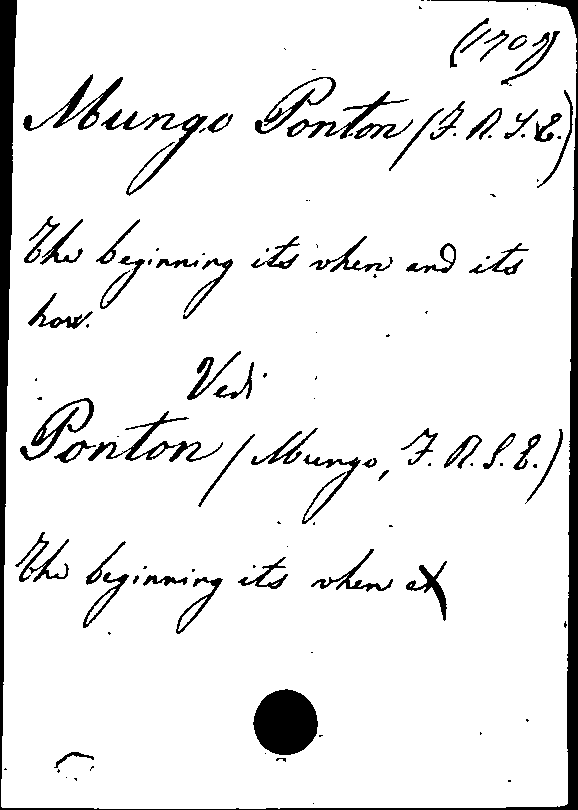 Mungo Ponton (F. R. S. E.)
The beginning its when and its
how.
Vedi
Ponton (Mungo, F. R. S. E.)
The beginning its when